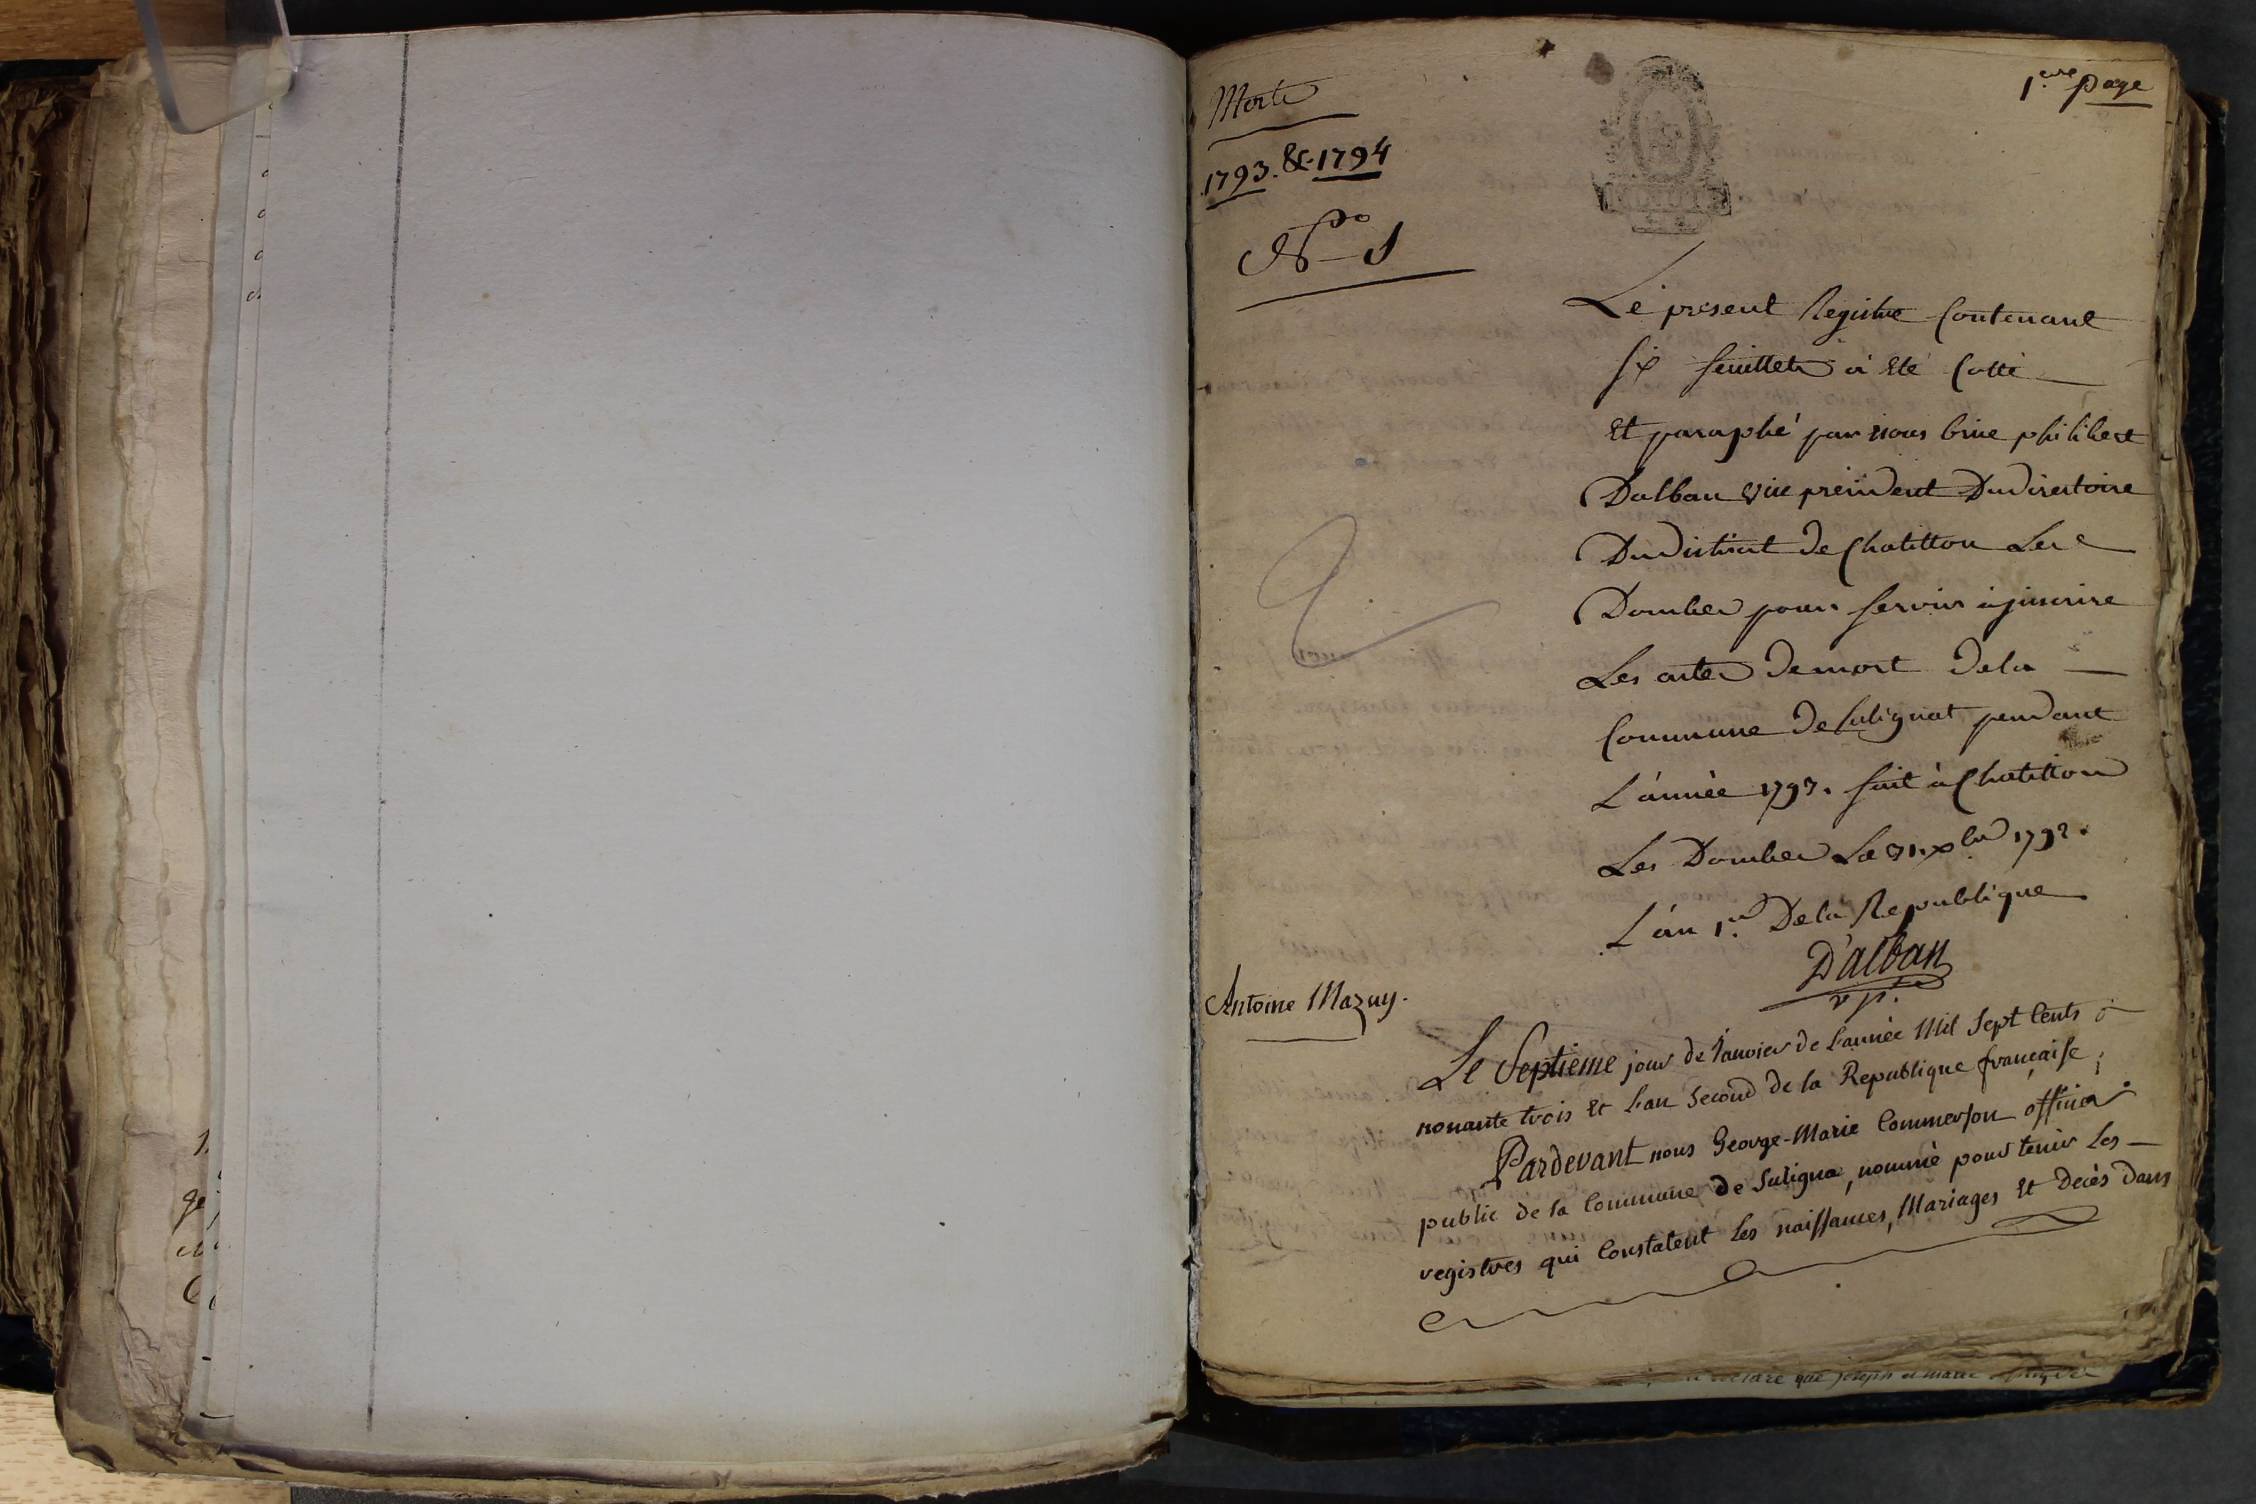 1.ere page
Morts
1793. & 1794
N.o 1
Le present Registre Contenant
six feuillets à Eté Cotté
Et paraphé par nous philibert
Dalban vice president Du directoire
Du district de Chatillon Les
Dombes pour servir à jnscrire
Les actes de mort de la
Commune de Sulignat pendant
L'année 1793. fait à Chatillon
Les Dombes Le 31. xbre 1792.
L'an 1.er De la Republique
D'alban
v p.t
Antoine Mazuy.
Le Septieme jour de Janvier de l'année Mil Sept Cents
nonante trois Et l'an Second de la Republique française,
Pardevant nous George-Marie Commerson officier
public de la Commune de Suligna, nommé pour tenir Les
registres qui Constatent Les naissances, Mariages Et Decès dans